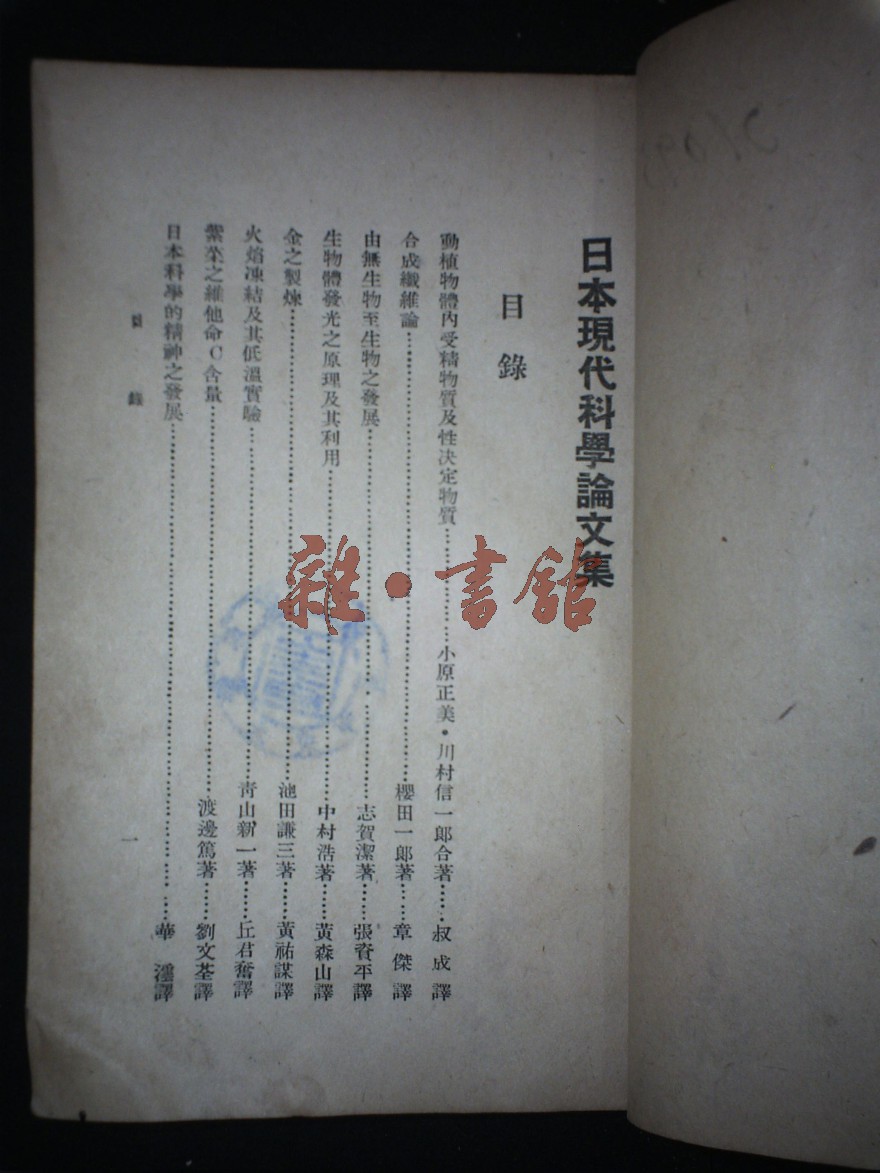 日本現代科學論文集
目錄
動植物體內受精物質及性決定物質……小原正美·川村信一郎合著……叔成譯
合成纖維論……櫻田一郎著……章傑譯
由無生物至生物之發展……志賀潔著……張資平譯
生物體發光之原理及其利用……中村浩著……黃森山譯
金之製煉……池田謙三著……黃祐謀譯
火焰凍結及其低溫實驗……青山新一著……丘君奮譯
紫菜之維他命C含量……渡邊篤著……劉文荃譯
日本科學的精神之發展……華譯
目錄
一
雜·書館